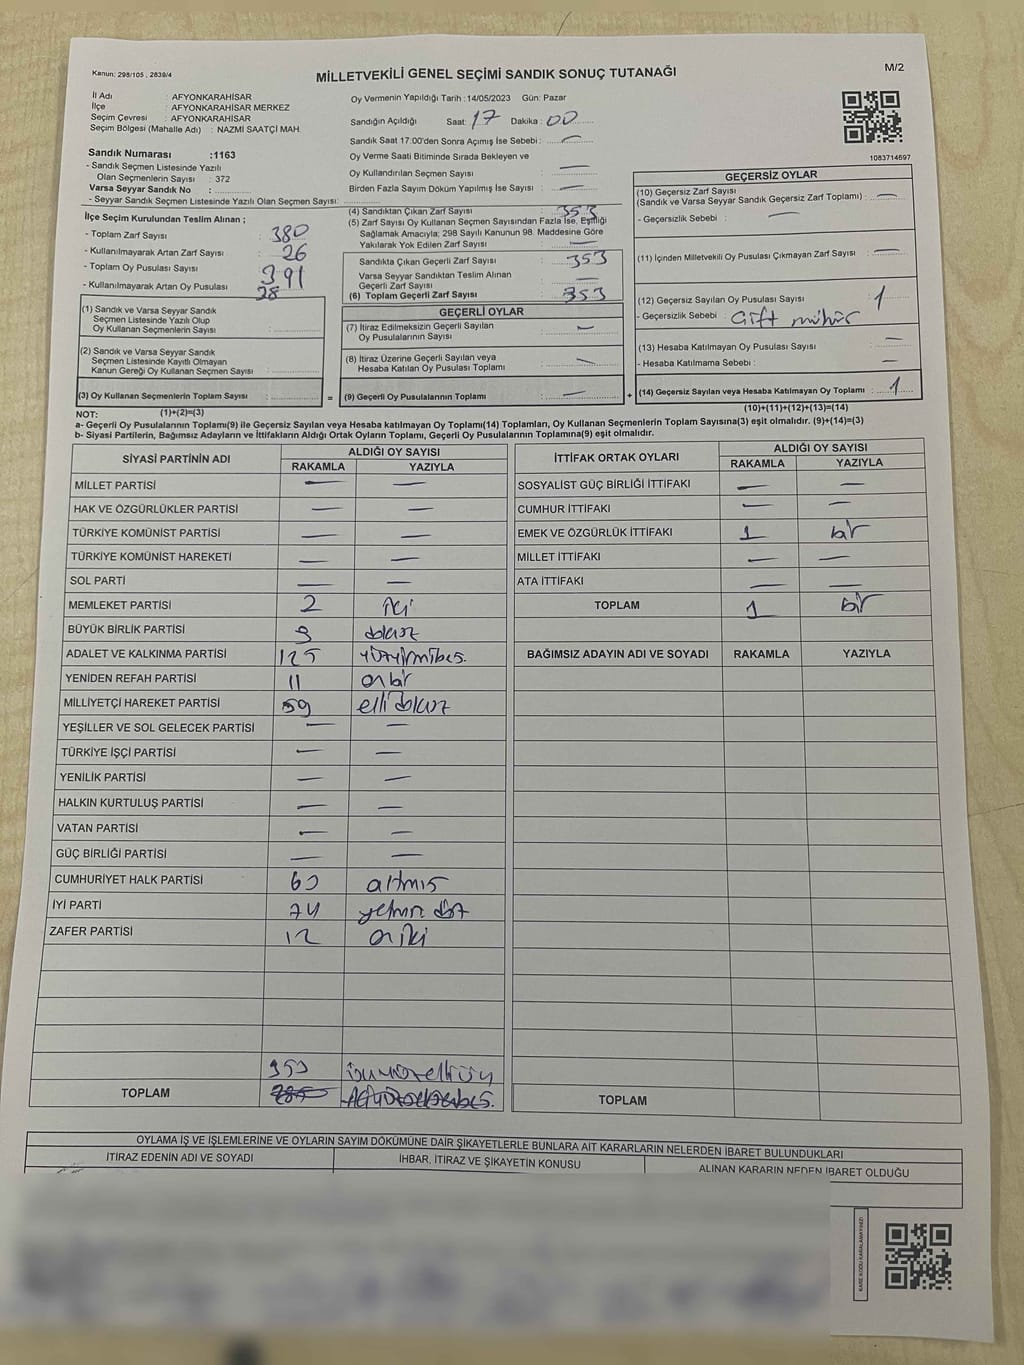 Kanun: 298/105 , 2839/4
MİLLETVEKİLİ GENEL SEÇİMİ SANDIK SONUÇ TUTANAĞI
M/2
İl Adı : AFYONKARAHİSAR
İlçe : AFYONKARAHİSAR MERKEZ
Seçim Çevresi : AFYONKARAHİSAR
Seçim Bölgesi (Mahalle Adı) : NAZMI SAATÇİ MAH.
Sandık Numarası :1163
- Sandık Seçmen Listesinde Yazılı
Olan Seçmenlerin Sayısı : 372
Varsa Seyyar Sandık No :
- Seyyar Sandık Seçmen Listesinde Yazılı Olan Seçmen Sayısı:
İlçe Seçim Kurulundan Teslim Alınan ;
- Toplam Zarf Sayısı : 380
- Kullanılmayarak Artan Zarf Sayısı : 26
- Toplam Oy Pusulası Sayısı : 391
- Kullanılmayarak Artan Oy Pusulası : 28
(1) Sandık ve Varsa Seyyar Sandık
Seçmen Listesinde Yazılı Olup
Oy Kullanan Seçmenlerin Sayısı :
(2) Sandık ve Varsa Seyyar Sandık
Seçmen Listesinde Kayıtlı Olmayan
Kanun Gereği Oy Kullanan Seçmen Sayısı :
(3) Oy Kullanan Seçmenlerin Toplam Sayısı :
Oy Vermenin Yapıldığı Tarih :14/05/2023 Gün: Pazar
Sandığın Açıldığı Saat: 17 Dakika : 00
Sandık Saat 17:00'den Sonra Açımış İse Sebebi : —
Oy Verme Saati Bitiminde Sırada Bekleyen ve
Oy Kullandırılan Seçmen Sayısı : —
Birden Fazla Sayım Döküm Yapılmış İse Sayısı : —
(4) Sandıktan Çıkan Zarf Sayısı : 353
(5) Zarf Sayısı Oy Kullanan Seçmen Sayısından Fazla İse, Eşitliği
Sağlamak Amacıyla; 298 Sayılı Kanunun 98. Maddesine Göre
Yakılarak Yok Edilen Zarf Sayısı : —
Sandıkta Çıkan Geçerli Zarf Sayısı : 353
Varsa Seyyar Sandıktan Teslim Alınan
Geçerli Zarf Sayısı : —
(6) Toplam Geçerli Zarf Sayısı : 353
GEÇERLİ OYLAR
(7) İtiraz Edilmeksizin Geçerli Sayılan
Oy Pusulalarının Sayısı : —
(8) İtiraz Üzerine Geçerli Sayılan veya
Hesaba Katılan Oy Pusulası Toplamı : —
= (9) Geçerli Oy Pusulalarının Toplamı : —
1083714697
GEÇERSİZ OYLAR
(10) Geçersiz Zarf Sayısı
(Sandık ve Varsa Seyyar Sandık Geçersiz Zarf Toplamı) : —
- Geçersizlik Sebebi : —
(11) İçinden Milletvekili Oy Pusulası Çıkmayan Zarf Sayısı : —
(12) Geçersiz Sayılan Oy Pusulası Sayısı : 1
- Geçersizlik Sebebi : Çift mühür
(13) Hesaba Katılmayan Oy Pusulası Sayısı : —
- Hesaba Katılmama Sebebi : —
+ (14) Geçersiz Sayılan veya Hesaba Katılmayan Oy Toplamı : 1
NOT: (1)+(2)=(3) (10)+(11)+(12)+(13)=(14)
a- Geçerli Oy Pusulalarının Toplamı(9) ile Geçersiz Sayılan veya Hesaba katılmayan Oy Toplamı(14) Toplamları, Oy Kullanan Seçmenlerin Toplam Sayısına(3) eşit olmalıdır. (9)+(14)=(3)
b- Siyasi Partilerin, Bağımsız Adayların ve İttifakların Aldığı Ortak Oyların Toplamı, Geçerli Oy Pusulalarının Toplamına(9) eşit olmalıdır.
SİYASİ PARTİNİN ADI ALDIĞI OY SAYISI
RAKAMLA YAZIYLA
MİLLET PARTİSİ — —
HAK VE ÖZGÜRLÜKLER PARTİSİ — —
TÜRKİYE KOMÜNİST PARTİSİ — —
TÜRKİYE KOMÜNİST HAREKETİ — —
SOL PARTİ — —
MEMLEKET PARTİSİ 2 iki
BÜYÜK BİRLİK PARTİSİ 9 dokuz
ADALET VE KALKINMA PARTİSİ 125 yüzyirmibeş.
YENİDEN REFAH PARTİSİ 11 onbir
MİLLİYETÇİ HAREKET PARTİSİ 59 ellidokuz
YEŞİLLER VE SOL GELECEK PARTİSİ — —
TÜRKİYE İŞÇİ PARTİSİ — —
YENİLİK PARTİSİ — —
HALKIN KURTULUŞ PARTİSİ — —
VATAN PARTİSİ — —
GÜÇ BİRLİĞİ PARTİSİ — —
CUMHURİYET HALK PARTİSİ 60 altmış
İYİ PARTİ 74 yetmiş dört
ZAFER PARTİSİ 12 oniki
353
TOPLAM
İTTİFAK ORTAK OYLARI ALDIĞI OY SAYISI
RAKAMLA YAZIYLA
SOSYALİST GÜÇ BİRLİĞİ İTTİFAKI — —
CUMHUR İTTİFAKI — —
EMEK VE ÖZGÜRLÜK İTTİFAKI 1 bir
MİLLET İTTİFAKI — —
ATA İTTİFAKI — —
TOPLAM 1 bir
BAĞIMSIZ ADAYIN ADI VE SOYADI RAKAMLA YAZIYLA
TOPLAM
OYLAMA İŞ VE İŞLEMLERİNE VE OYLARIN SAYIM DÖKÜMÜNE DAİR ŞİKAYETLERLE BUNLARA AİT KARARLARIN NELERDEN İBARET BULUNDUKLARI
İTİRAZ EDENİN ADI VE SOYADI İHBAR, İTİRAZ VE ŞİKAYETİN KONUSU ALINAN KARARIN NEDEN İBARET OLDUĞU
KARE KODU KARALAMAYINIZ!